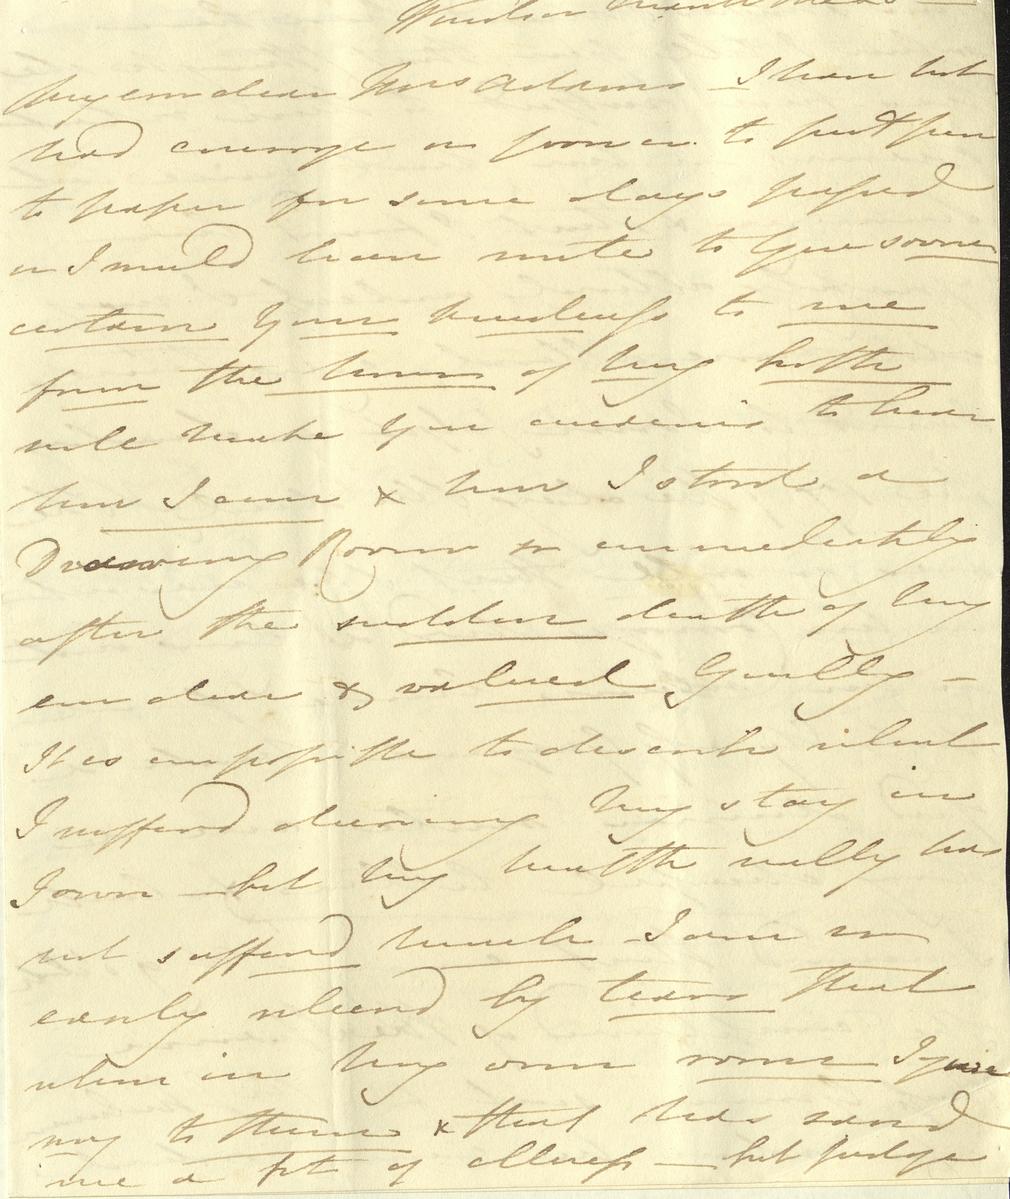 Windsor March
My ever dear Mrs Adams – I have not
had courage or power to put pen
to paper for some days passed
or I would have wrote to You sooner
certain Your kindness to me
from the hour of my birth
will make You anxious to hear
how I am & how I stood a
Drawing Room so immediately
after the sudden death of my
ever dear & valued Goully –
It is impossible to describe what
I suffered during my stay in
Town – but my health really has
not suffered much – I am so
easily relieved by tears that
when in my own room I give
way to them & that has saved
me a fit of illness – but judge